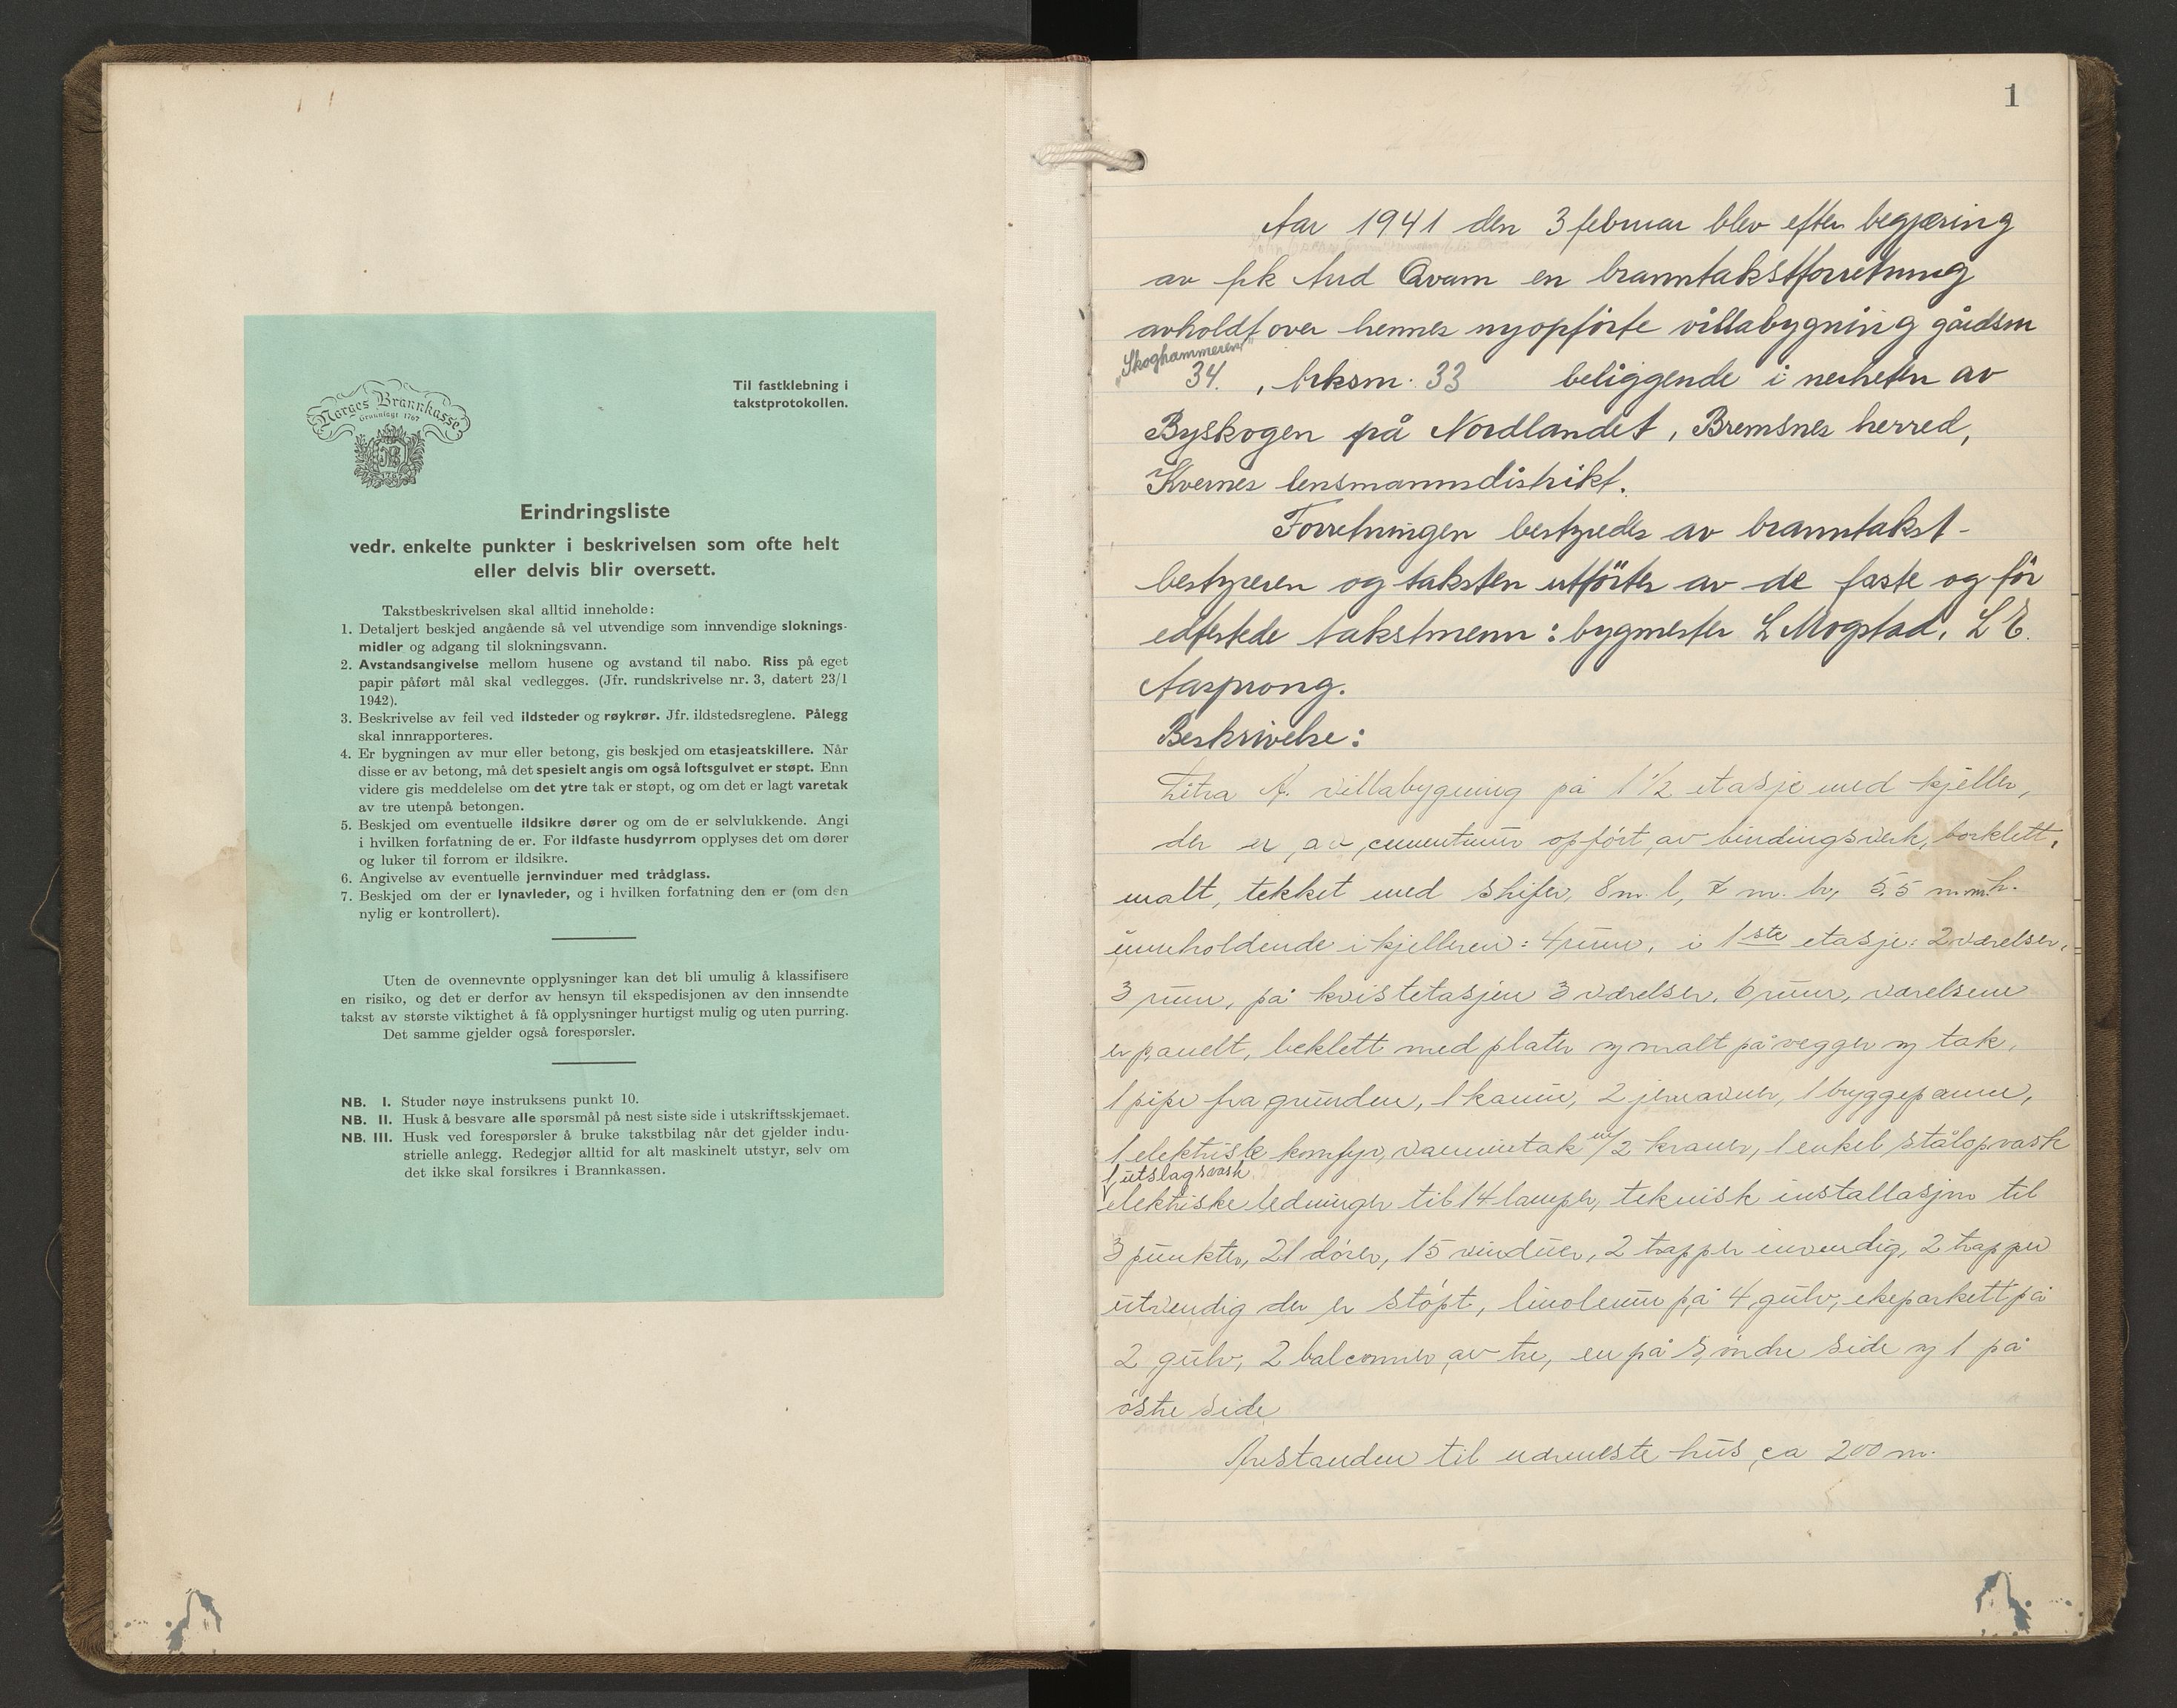 Til fastklebning i
takstprotokollen.
Norges Brannkasse
Grunnlagt 1767
Erindringsliste
vedr. enkelte punkter i beskrivelsen som ofte helt
eller delvis blir oversett.
Takstbeskrivelsen skal alltid inneholde:
1. Detaljert beskjed angående så vel utvendige som innvendige sloknings-
midler og adgang til slokningsvann.
2. Avstandsangivelse mellom husene og avstand til nabo. Riss på eget
papir påført mål skal vedlegges. (Jfr. rundskrivelse nr. 3, datert 23/1
1942).
3. Beskrivelse av feil ved ildsteder og røykrør. Jfr. ildstedsreglene. Pålegg
skal innrapporteres.
4. Er bygningen av mur eller betong, gis beskjed om etasjeatskillere. Når
disse er av betong, må det spesielt angis om også loftsgulvet er støpt. Enn
videre gis meddelelse om det ytre tak er støpt, og om det er lagt varetak
av tre utenpå betongen.
5. Beskjed om eventuelle ildsikre dører og om de er selvlukkende. Angi
i hvilken forfatning de er. For ildfaste husdyrrom opplyses det om dører
og luker til forrom er ildsikre.
6. Angivelse av eventuelle jernvinduer med trådglass.
7. Beskjed om der er lynavleder, og i hvilken forfatning den er (om den
nylig er kontrollert).
Uten de ovennevnte opplysninger kan det bli umulig å klassifisere
en risiko, og det er derfor av hensyn til ekspedisjonen av den innsendte
takst av største viktighet å få opplysninger hurtigst mulig og uten purring.
Det samme gjelder også forespørsler.
NB. I. Studer nøye instruksens punkt 10.
NB. II. Husk å besvare alle spørsmål på nest siste side i utskriftsskjemaet.
NB. III. Husk ved forespørsler å bruke takstbilag når det gjelder indu-
strielle anlegg. Redegjør alltid for alt maskinelt utstyr, selv om
det ikke skal forsikres i Brannkassen.
1
Aar 1941 den 3 februar blev efter begjæring
av frk Aud Qvam en branntakstforretning
avholdt over hennes nyopførte villabygning gårdsnr
"Skoghammeren"
34. , brksnr. 33 beliggende i nerheten av
Byskogen på Nordlandet, Bremsnes herred,
Kvernes lensmannsdistrikt.
Forretningen bestyredes av branntakst-
bestyreren og taksten utførtes av de faste og før
edfestede takstmenn: bygmester L Mogstad, L E.
Aasprong.
Beskrivelse:
Litra A. villabygning på 1 1/2 etasje med kjeller,
der er av cementmur opført av bindingsverk, bordklett,
malt, tekket med skifer, 8 m. l, 7 m. br, 5,5 m.m.h.
innholdende i kjelleren: 4 rum, i 1ste etasje: 2 værelser,
3 rum, på kvistetasjen 3 værelser, 6 rum, værelsene
er panelt, beklett med plater og malt på vegger og tak,
1 pipe fra grunden, 1 kamin, 2 jernovner, 1 bryggepanne,
1 elektrisk komfyr, vanninntak m/2 kraner, 1 enkel stålopvask
1 utslagsvask
elektriske ledninger til 14 lamper, teknisk installasjon til
3 punkter, 21 dører, 15 vinduer, 2 trapper invendig, 2 trapper
utvendig der er støpt, linoleum på 4 gulv, ekeparkett på
2 gulv, 2 balconner av tre, en på söndre side og 1 på
östre side
Avstanden til nærmeste hus ca 200 m.